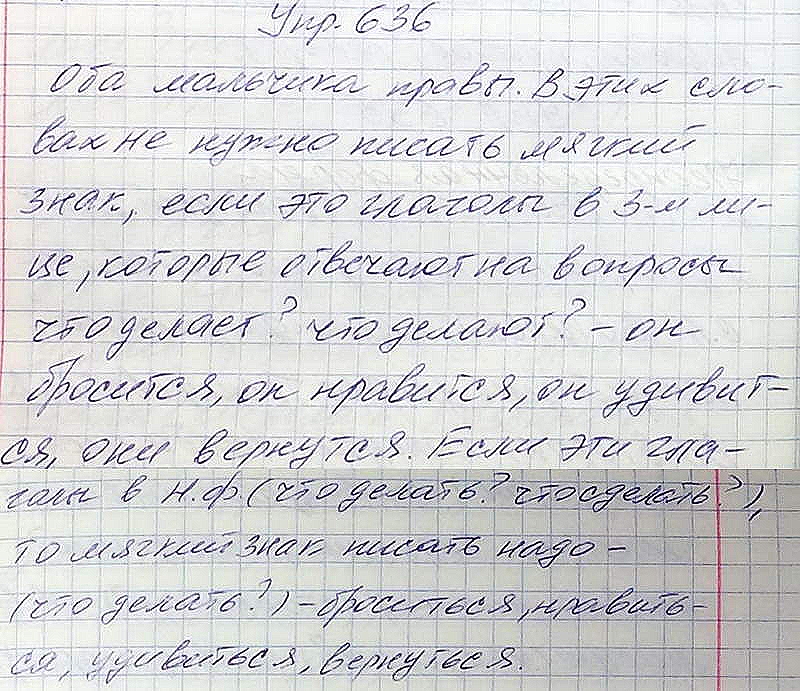 Упр. 636
Оба мальчика правы. В этих сло-
вах не нужно писать мягкий
знак, если это глаголы в 3-м ли-
це, которые отвечают на вопросы
что делает? что делают? – он
бросится, он нравится, он удивит-
ся, они вернутся. Если эти гла-
голы в н.ф. (что делать? что сделать?),
то мягкий знак писать надо –
(что делать?) – броситься, нравить-
ся, удивиться, вернуться.